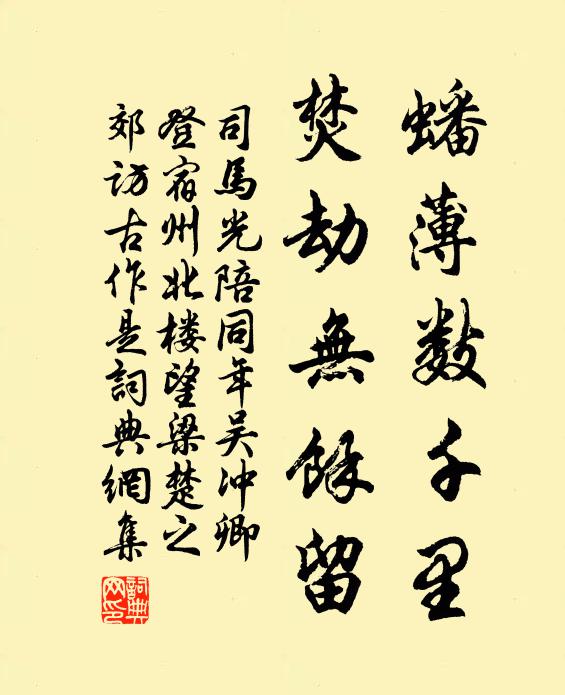 蟠薄数千里
焚劫無餘留
司馬光陪同年吴冲卿
登宿州北楼望梁楚之
郊访古作是詞典網集
詞典網印